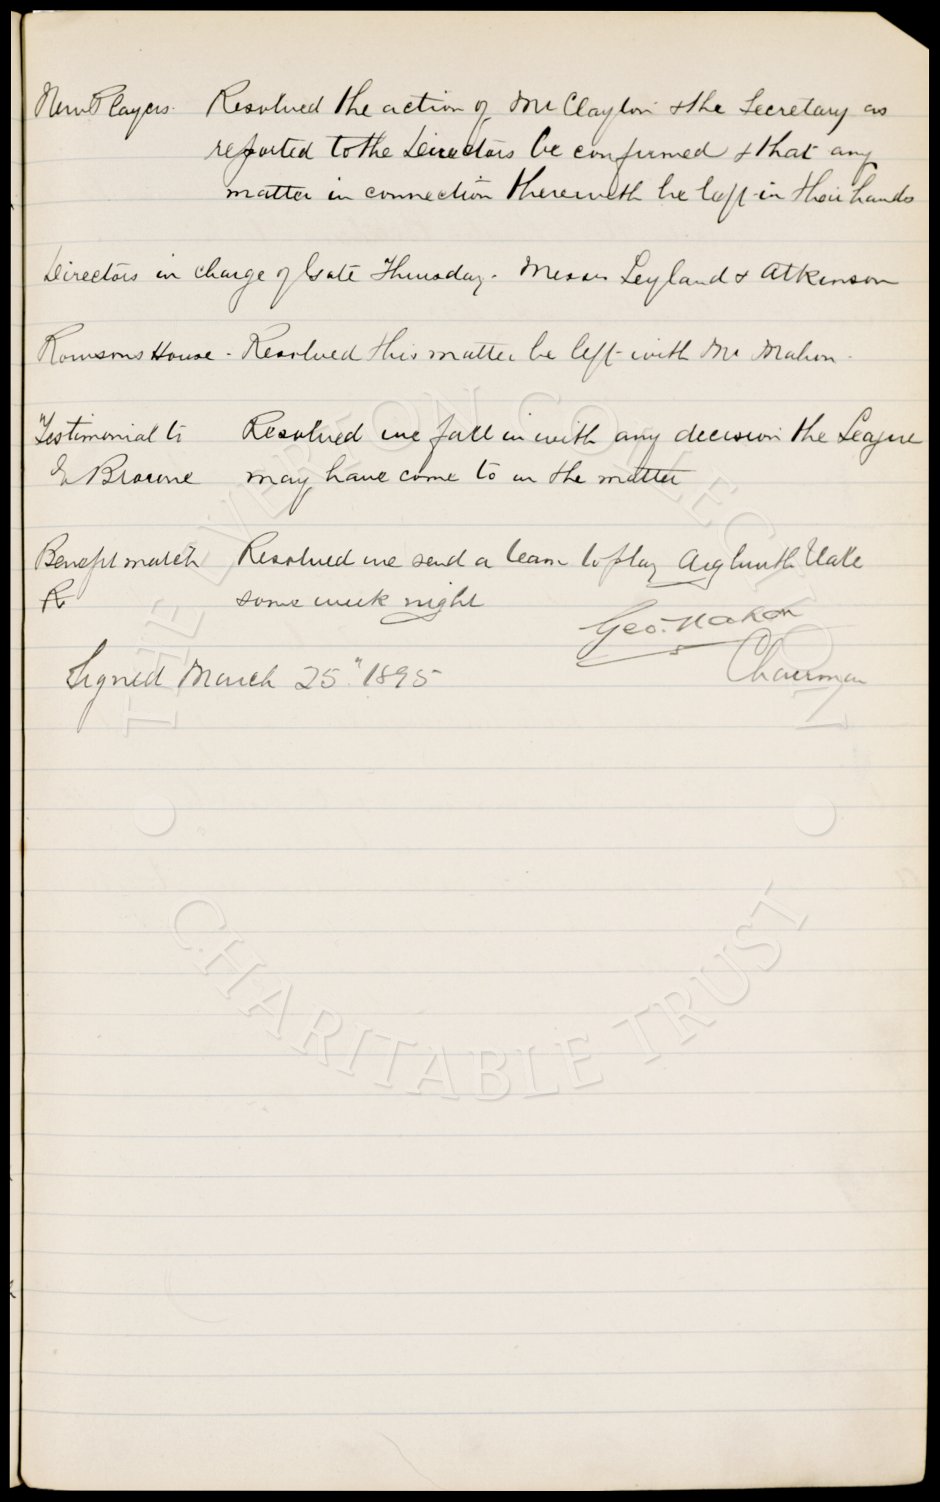 New Players. Resolved the action of Mr Clayton & the Secretary as
reported to the Directors be confirmed & that any
matter in connection therewith be left in their hands
Directors in charge of Gate Thursday. Messrs Leyland & Atkinson
House - Resolved this matter be left with Mr Mahon.
Testimonial to Resolved we fall in with any decision the League
E Browne may have come to in the matter
Benefit match Resolved we send a team to play Aigburth Vale
R some week night
Geo. Mahon
Signed March 25" 1895 Chairman
THE EVERTON COLLECTION
CHARITABLE TRUST